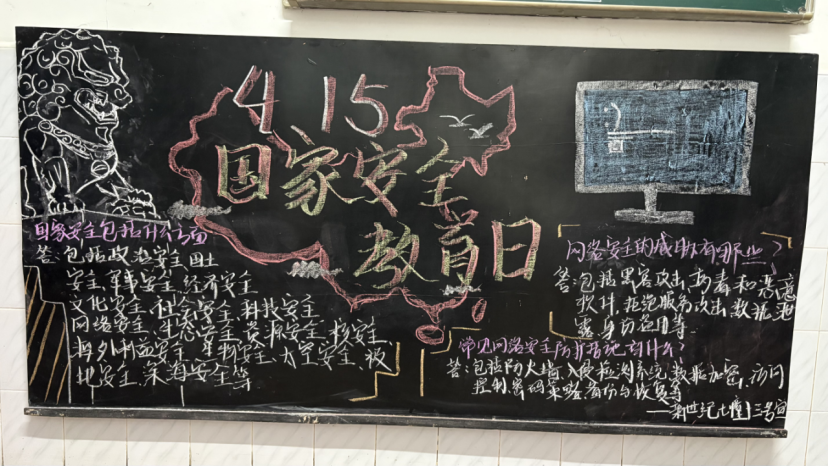 4 15
国家安全
教育日
国家安全包括什么方面
答:包括政治安全、国土
安全、军事安全、经济安全
文化安全、社会安全、科技安全、
网络安全、生态安全、资源安全、核安全、
海外利益安全、生物安全、太空安全、极
地安全、深海安全等
网络安全的威胁有哪些?
答:包括黑客攻击、病毒和恶意
软件、拒绝服务攻击、数据泄
露、身份盗用等
常见网络安全防护措施有什么?
答:包括防火墙、入侵检测系统、数据加密、访问
控制、密码策略、备份与恢复等
——新世纪七幢三号宣